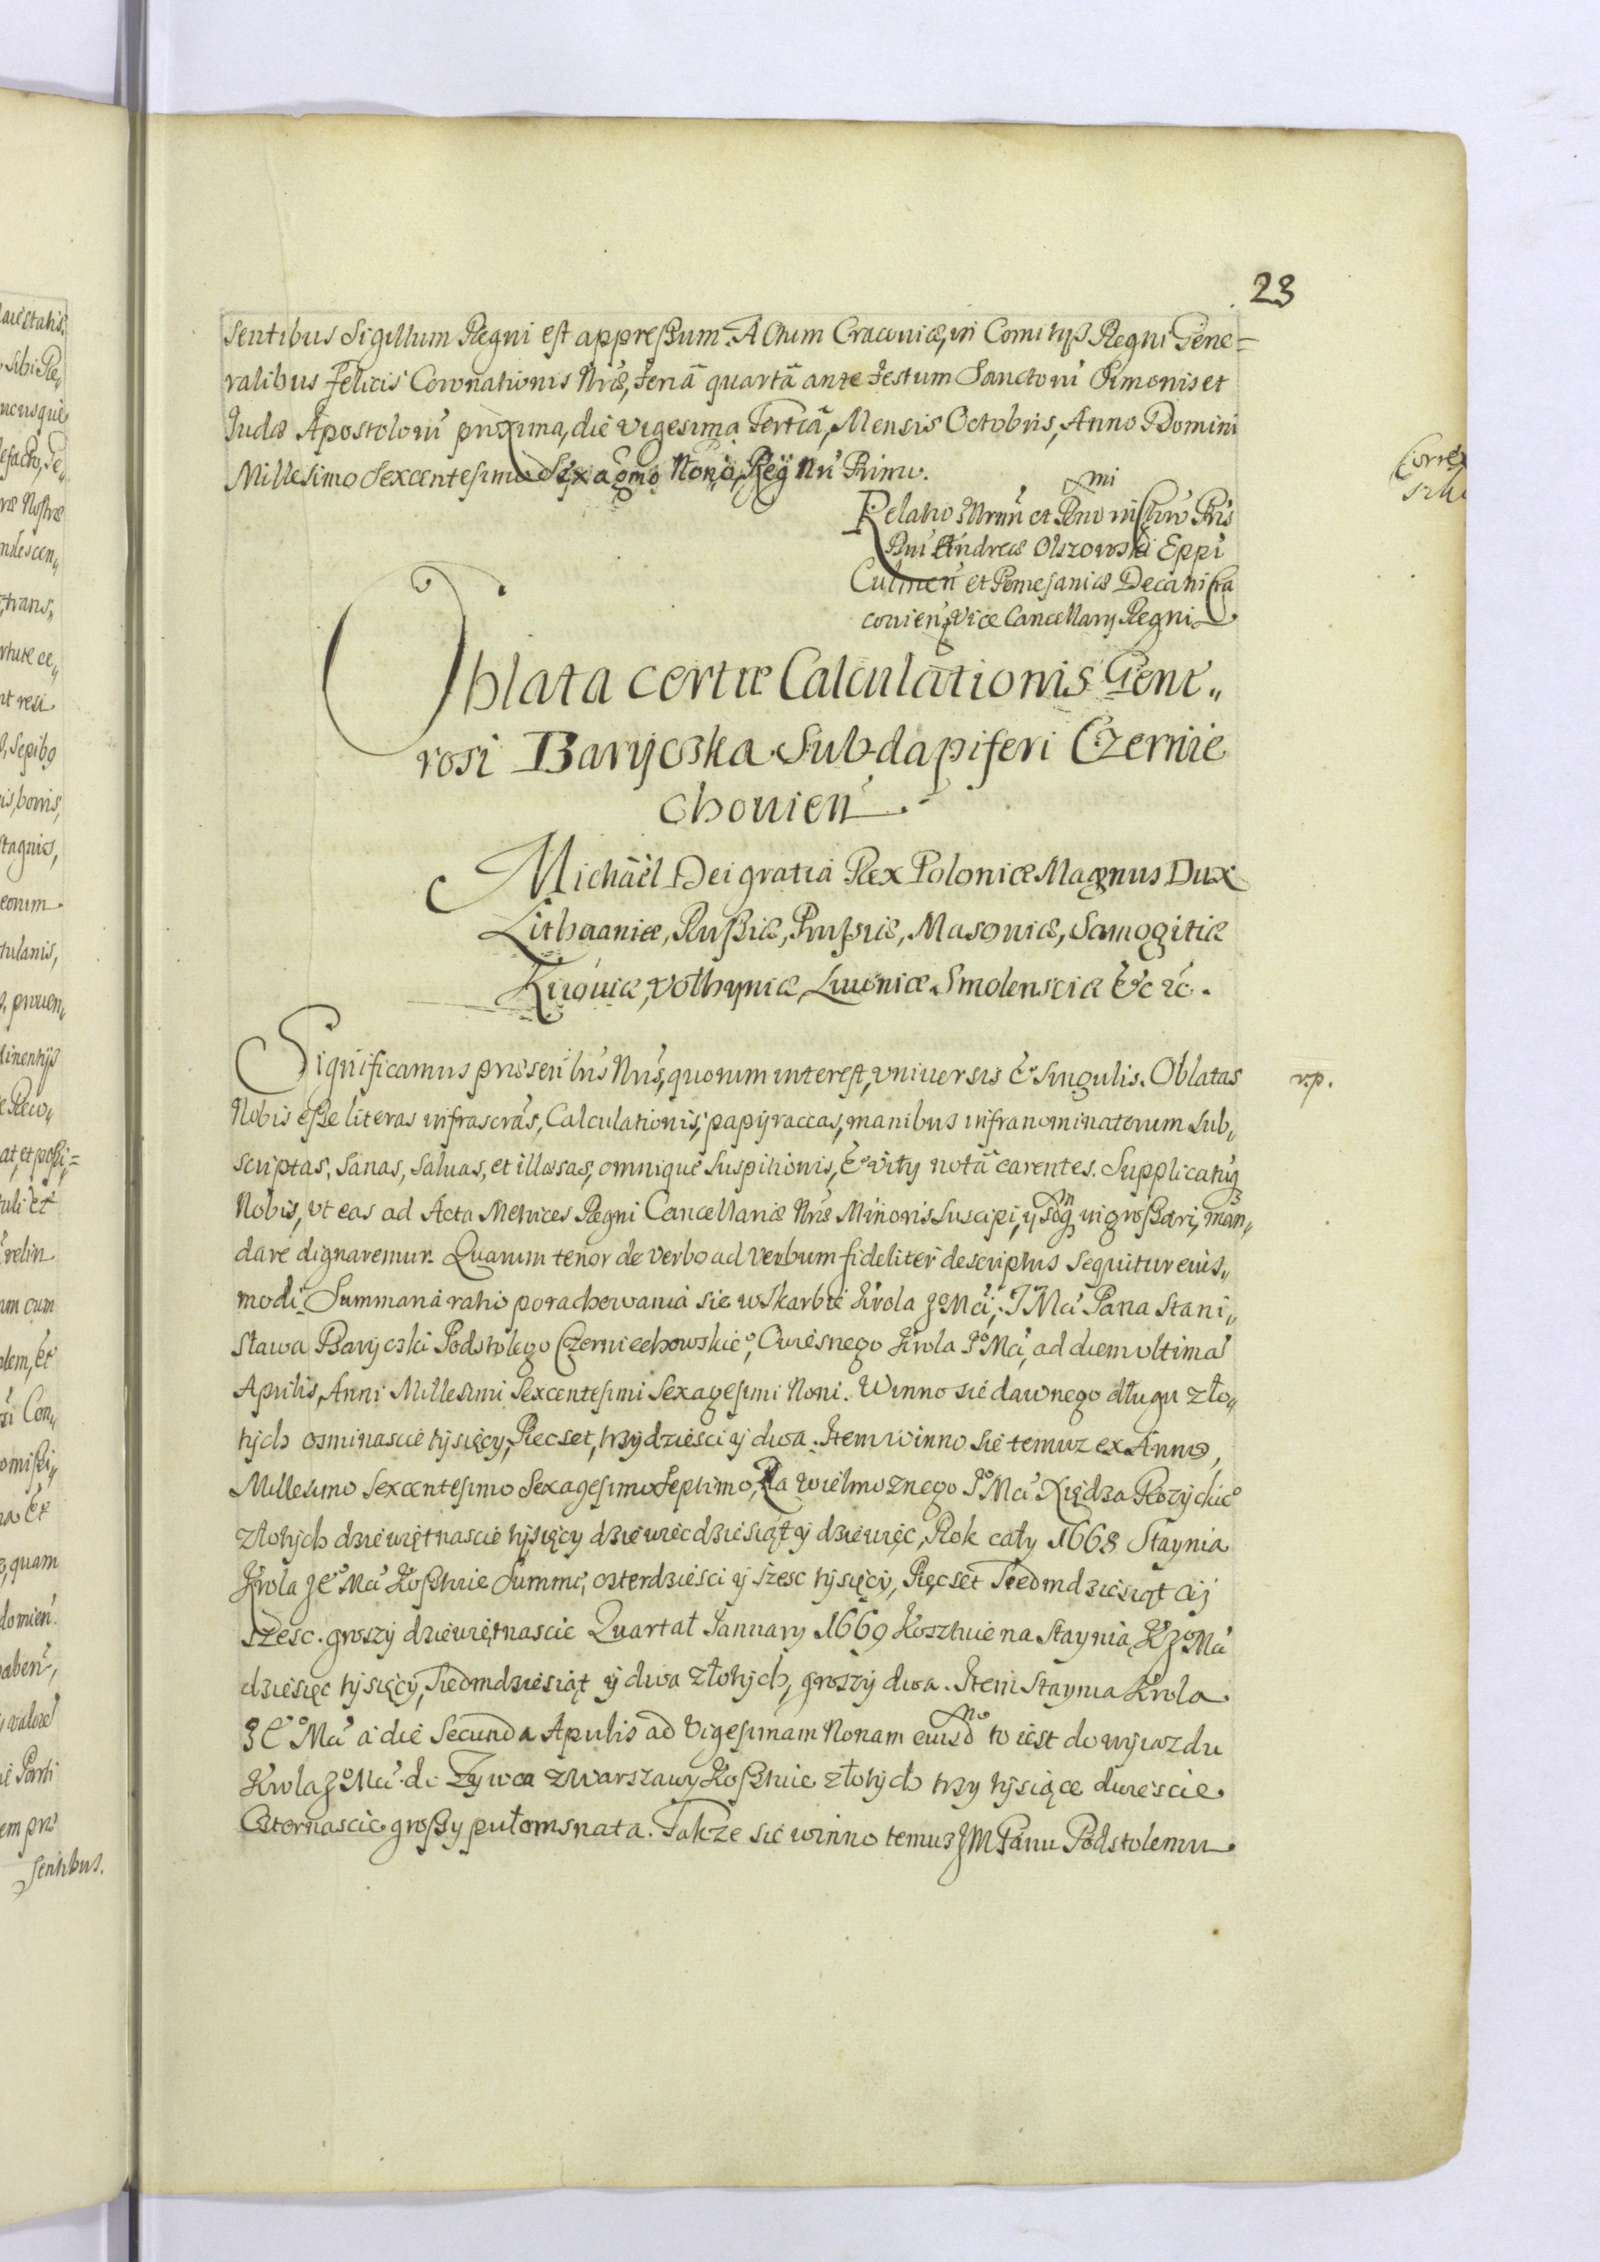 23
sentibus Sigillum Regni est appressum. Actum Cracoviæ, in Comitijs Regni Gene=
ralibus Felicis Coronationis Nræ, Feriâ quartâ ante Festum Sanctorũ Simonis et
Judæ Apostolorũ proxima, die vigesima Tertiâ, Mensis Octobris, Anno Domini
Millesimo Sexcentesimo Sexagmo Nono, Regni Nri Primo.
Relatio Illrmi et Rndmi in Chro Pris
Dni Andreæ Olszowski Eppi
Culmeń et Pomesaniæ Decani Cra
covień, Vice Cancellary Regni
Oblata certæ Calculationis Gene„
rosi Baryczka Subdapiferi Czernie
chovień.
Michaël Dei gratiâ Rex Poloniæ Magnus Dux
Lithuaniæ, Russiæ, Prussiæ, Masoviæ, Samogitiæ
Kijoviæ, Volhyniæ, Livoniæ Smolensciæ &c &c.
Significamus præsentibus Nris, quorum interest, vniuersis & singulis. Oblatas v.p.
Nobis esse literas infrascrãs, Calculationis, papyraceas, manibus infranominatorum sub„
scriptas, sanas, saluas, et illæsas, omnique suspitionis, & vitij notâ carentes. Supplicatumq
Nobis, vt eas ad Acta Metrices Regni Cancellariæ Nræ Minoris suscipi, ingrossari, man„
dare dignaremur. Quarum tenor de verbo ad verbum fideliter descriptus sequitur eius„
modi. Summaria ratio porachowania sie w Skarbie Krola JoMci, JMci Pana Stani„
sława Baryczki Podstolego Czerniechowskiego, Krola JoMci, ad diem vltimã
Aprilis, Anni Millesimi Sexcentesimi Sexagesimi Noni. Winno sie dawnego długu zło„
tych osminascie tysięcy, Piecset, trzydziesci y dwa. Item winno sie temuz ex Anno,
Millesimo Sexcentesimo Sexagesimo Septimo, Za Wielmoznego JoMci Xiędza Rozyckiego
złotych dziewiętnascie tysięcy dziewiec dziesiąt y dziewięc, Rok cały 1668 Staynia
Krola JeoMci Kosztuie Summę, czterdziesci y szesc tysięcy, Pięcset Siedmdziesiąt y
szesc. groszy dziewiętnascie Quartał January 1669 Kosztuie na Staynią K JoMci
dziesięc tysięcy, Siedmdziesiąt y dwa złotych, groszy dwa. Item Staynia Krola
JeoMci à die Secunda Aprilis ad Vigesimam Nonam eiusd to iest do wyiazdu
Krola JoMci do Zywca z Warszawy Kosztuie złotych trzy tysiące dwiescie
Czternascie groszy pułosmnasta. Takze sie winno temuz JM Panu Podstolemu